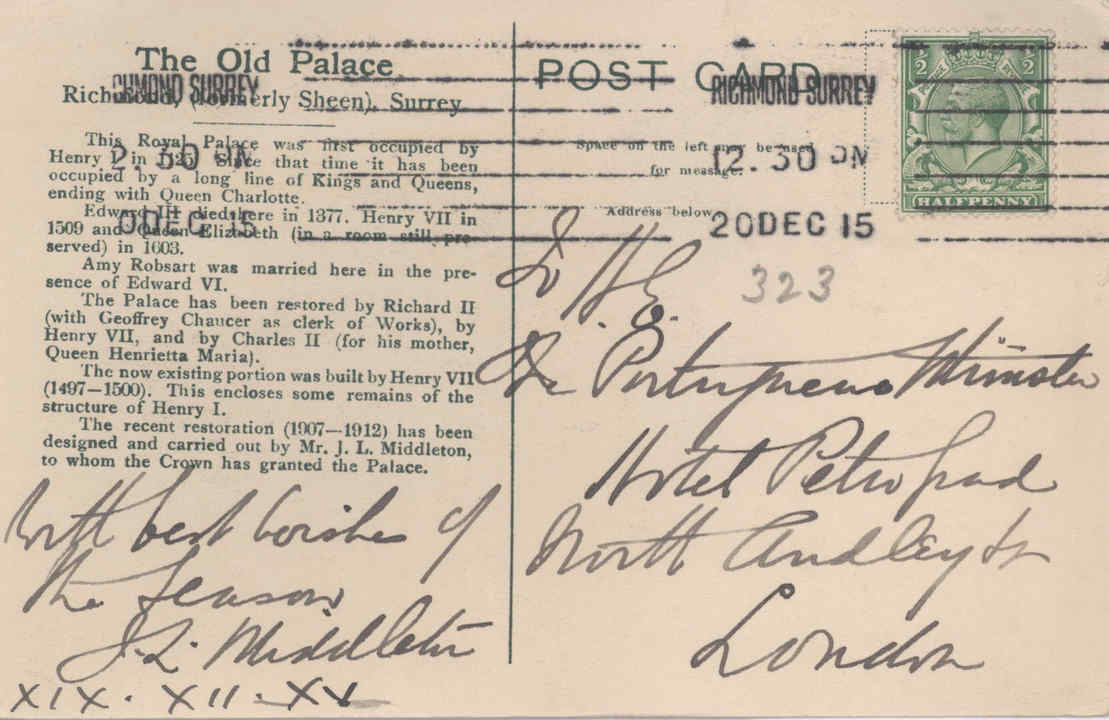 The Old Palace
Richmond, (formerly Sheen), Surrey
This Royal Palace was first occupied by
Henry I in 1125. Since that time it has been
occupied by a long line of Kings and Queens,
ending with Queen Charlotte.
Edward III died here in 1377. Henry VII in
1509 and Queen Elizabeth (in a room still pre-
served) in 1603.
Amy Robsart was married here in the pre-
sence of Edward VI.
The Palace has been restored by Richard II
(with Geoffrey Chaucer as clerk of Works), by
Henry VII, and by Charles II (for his mother,
Queen Henrietta Maria).
The now existing portion was built by Henry VII
(1497—1500). This encloses some remains of the
structure of Henry I.
The recent restoration (1907—1912) has been
designed and carried out by Mr. J. L. Middleton,
to whom the Crown has granted the Palace.
With best wishes of
the Season
J. L. Middleton
XIX. XII. XV
POST CARD
Space on the left may be used
for message.
Address below
RICHMOND SURREY
2.30 PM
DEC 15
RICHMOND SURREY
12.30 PM
20 DEC 15
1/2 1/2
HALFPENNY
323
To H.E.
The Portuguese Minister
Hotel Petrograd
North Audley St
London